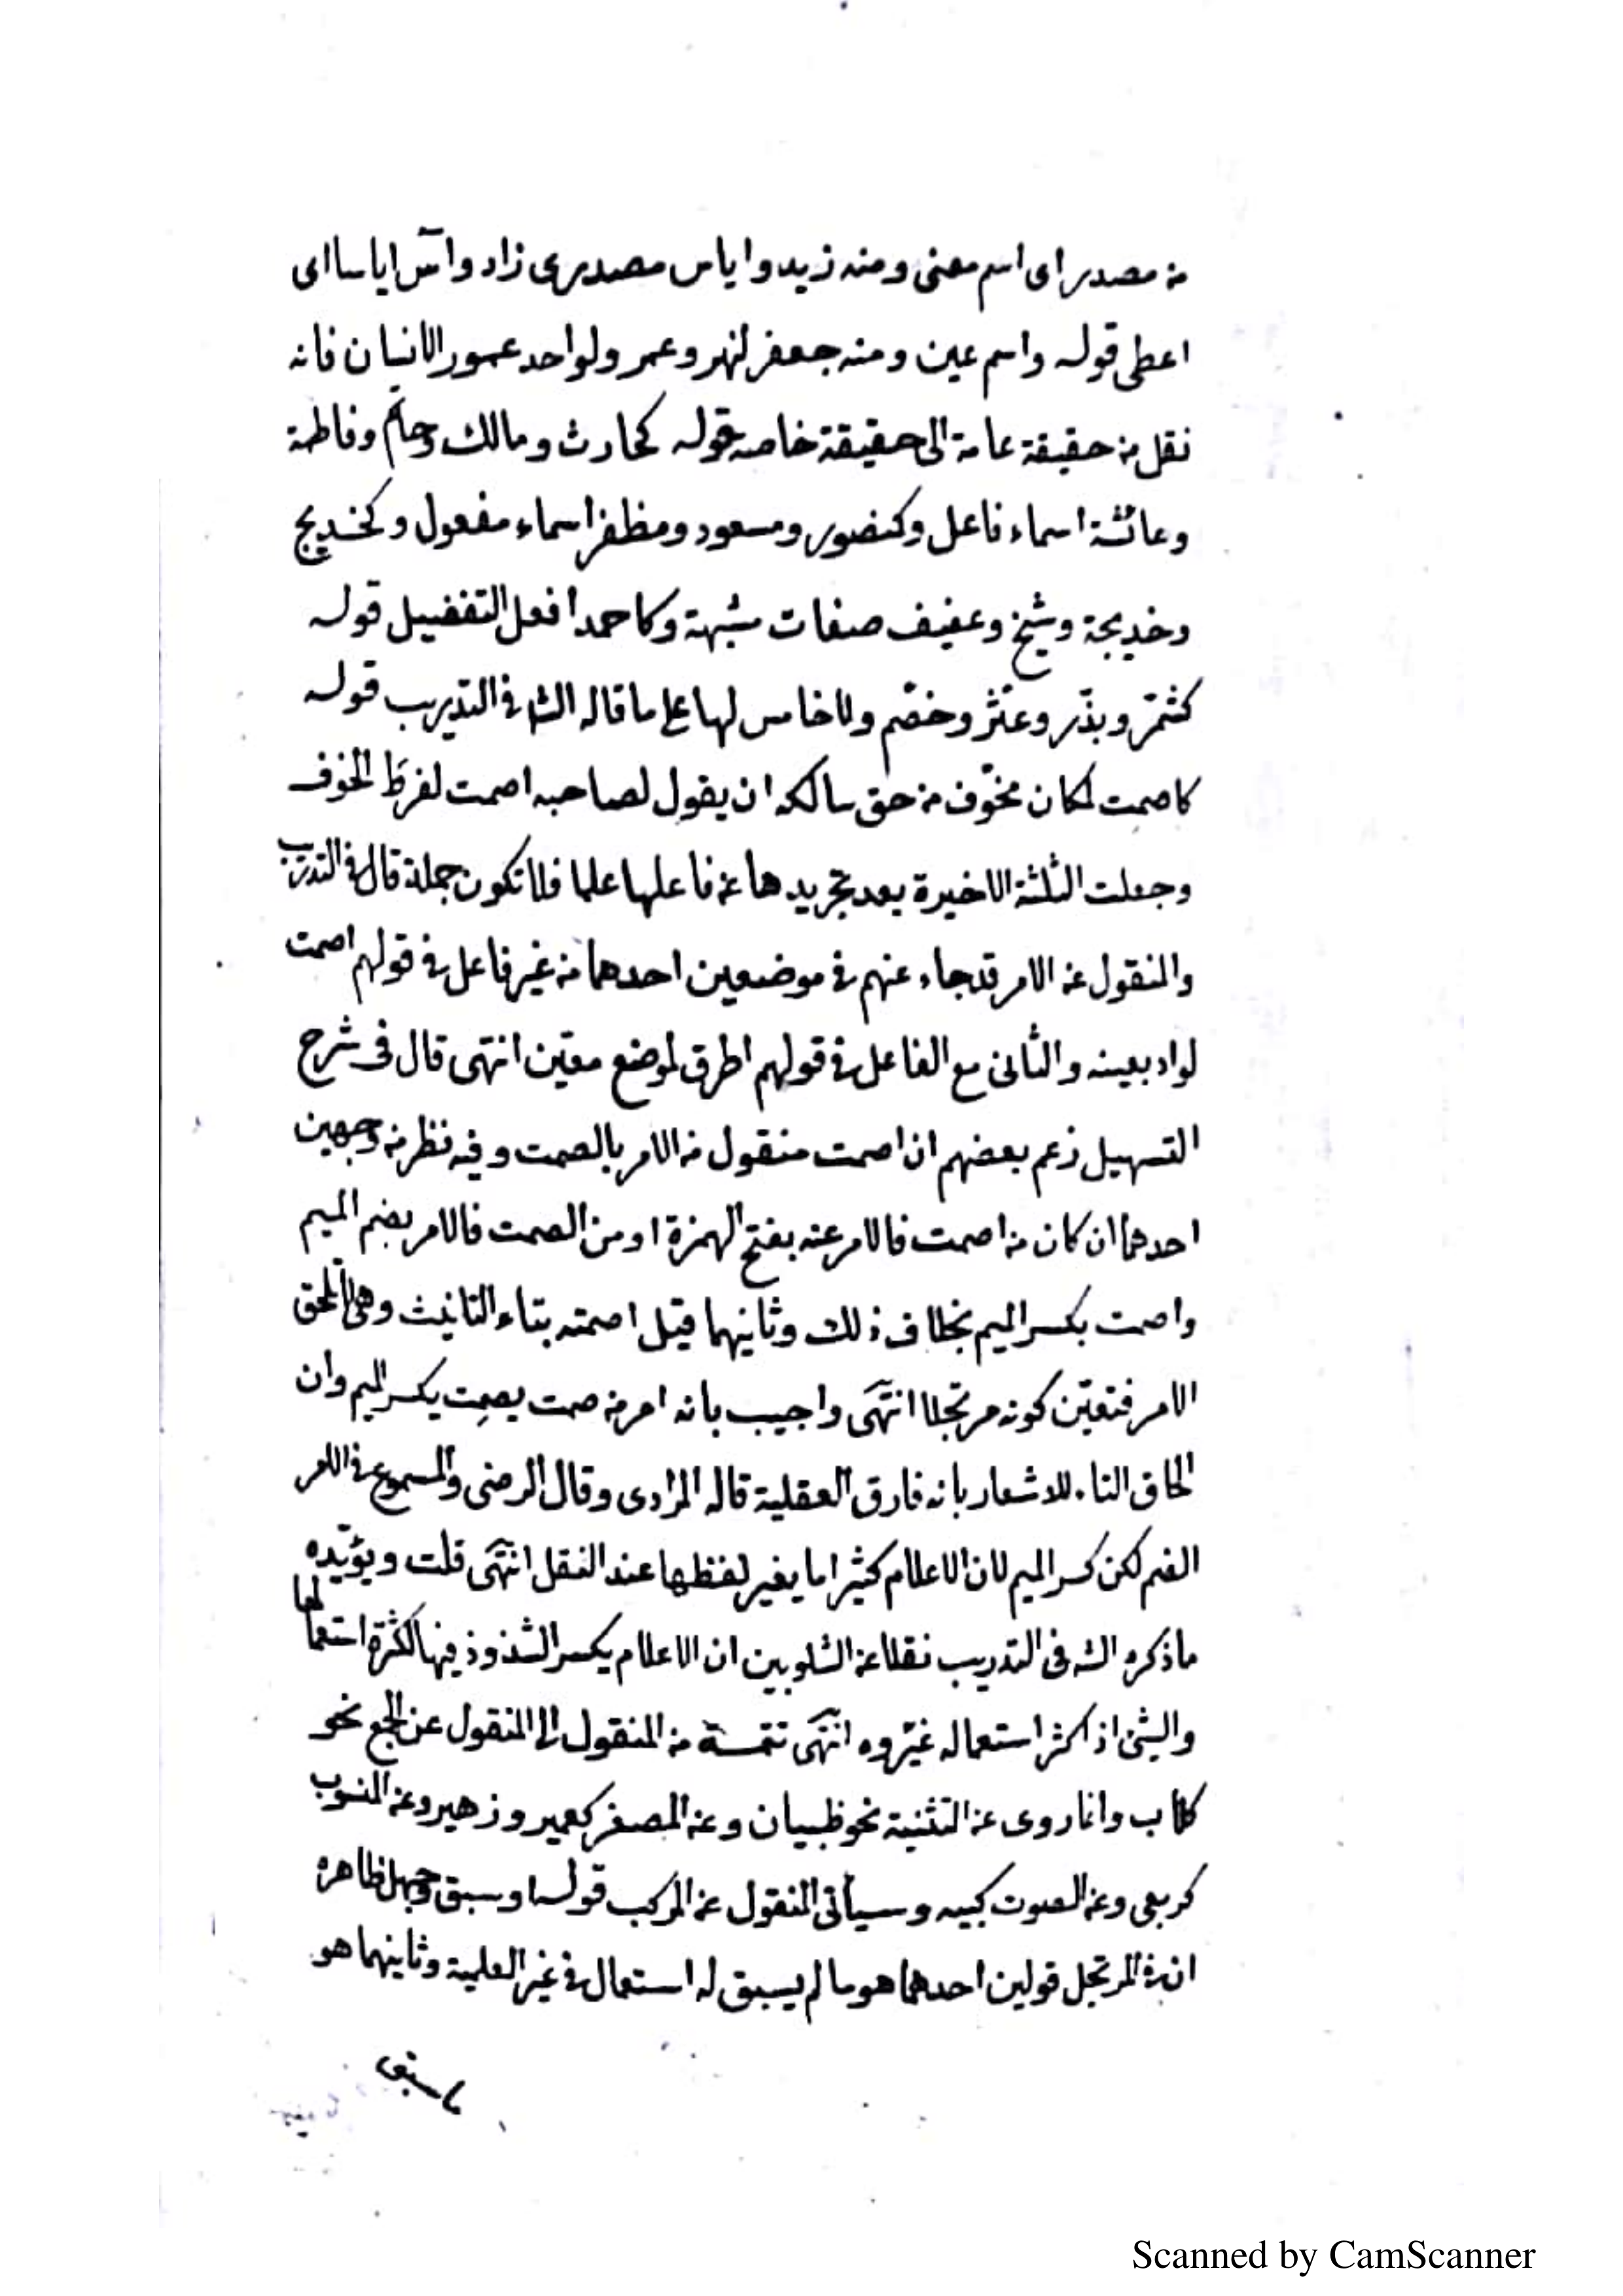 من مصدر اى اسم معنى ومنه زيد واياس مصدرى زاد واٰس اياسا اى
اعطى قوله واسم عين ومنه جعفر لنهر وعمر ولواحد عمور الانسان فانه
نقل من حقيقة عامة الى حقيقة خاصه قوله كحارث ومالك وحاتم وفاطمة
وعائشة اسماء فاعل وكمنصور ومسعود ومظفر اسماء مفعول وكخديج
وخديجة وشيخ وعفيف صفات مشبهة وكاحمد افعل التفضيل قوله
كشمّر وبذّر وعثّر وخضّم ولا خامس لها على ما قاله الشا فى التدريب قوله
كاصمت لمكان مخوّف من حق سالكه ان يقول لصاحبه اصمت لفرط الخوف
وجعلت الثلثة الاخيرة بعد تجريدها عن فاعلها علما فلا تكون جملة قال فى التدريب
والمنقول عن الامر قد جاء عنهم فى موضعين احدهما من غير فاعل فى قولهم اصمت
لواد بعينه والثانى مع الفاعل فى قولهم اطرق لموضع معيّن انتهى قال فى شرح
التسهيل زعم بعضهم ان اصمت منقول من الامر بالصمت وفيه نظر من وجهين
احدهما ان كان من اصمت فالامر عنه بفتح الهمزة او من الصمت فالامر بضم الميم
واصمت بكسر الميم بخلاف ذلك وثانيهما قيل اصمته بتاء التانيث وهى لا تلحق
الامر فتعيّن كونه مرتجلا انتهى واجيب بانه امر من صمت يصمِت بكسر الميم وان
الحاق التاء للاشعار بانه فارق الفعلية قاله المرادى وقال الرضى والمسموع فى الامر
الضم لكن كسر الميم لان الاعلام كثيرا ما يغير لفظها عند النقل انتهى قلت ويؤيّده
ما ذكره الشه فى التدريب نقلا عن الشلوبين ان الاعلام يكسر الشذوذ فيها لكثرة استعمالها
والشئ اذ اكثر استعماله غيّروه انتهى تتمسة من المنقول الى المنقول عن الجمع نحو
كلاب وانما روى عن التثنية نحو ظبيان وعن المصغر كعمير وزهير وعن المنسوب
كربعى وعن الصوت كببه وسيأتى المنقول عن المركب قوله او سبق وجهل ظاهره
ان فى المرتجل قولين احدهما هو ما لم يسبق له استعمال فى غير العلمية وثانيهما هو
ما سبق
Scanned by CamScanner